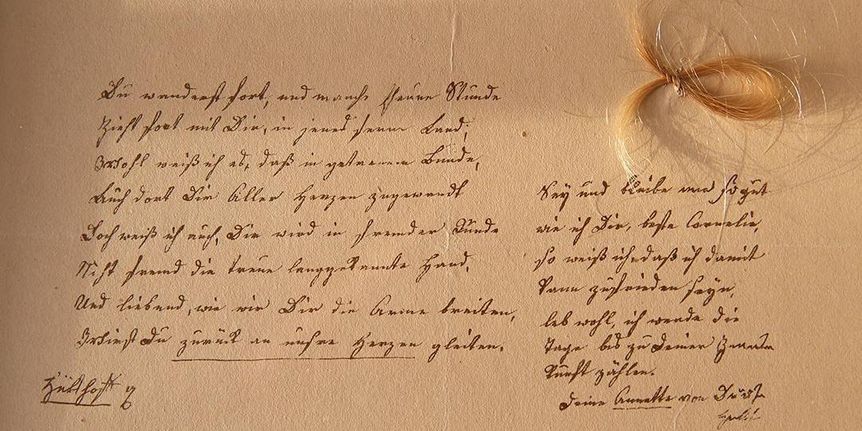 Du wanderst fort, und manche schöne Stunde
Zieht fort mit Dir, in jenes ferne Land,
Wohl weiß ich es, daß in getrennem Bunde,
Auch dort Dir Aller Herzen zugewandt
Doch weiß ich auch, Dir wird in fremder Runde
Nicht fremd die treue langgekannte Hand,
Und liebend, wie wir Dir die Arme breiten,
Wirst Du zurück an unsre Herzen gleiten.
Sey und bleibe mir so gut
wie ich Dir, beste Cornelie,
so weiß ich daß ich damit
kann zufrieden seyn,
leb wohl, ich werde die
Tage bis zu Deiner
kunft zählen.
Deine Annette von Droste